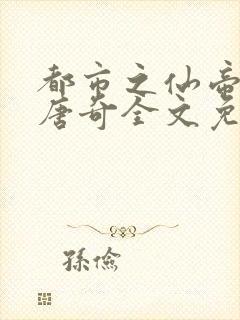 都市之仙帝
唐奇全文免
孫儉